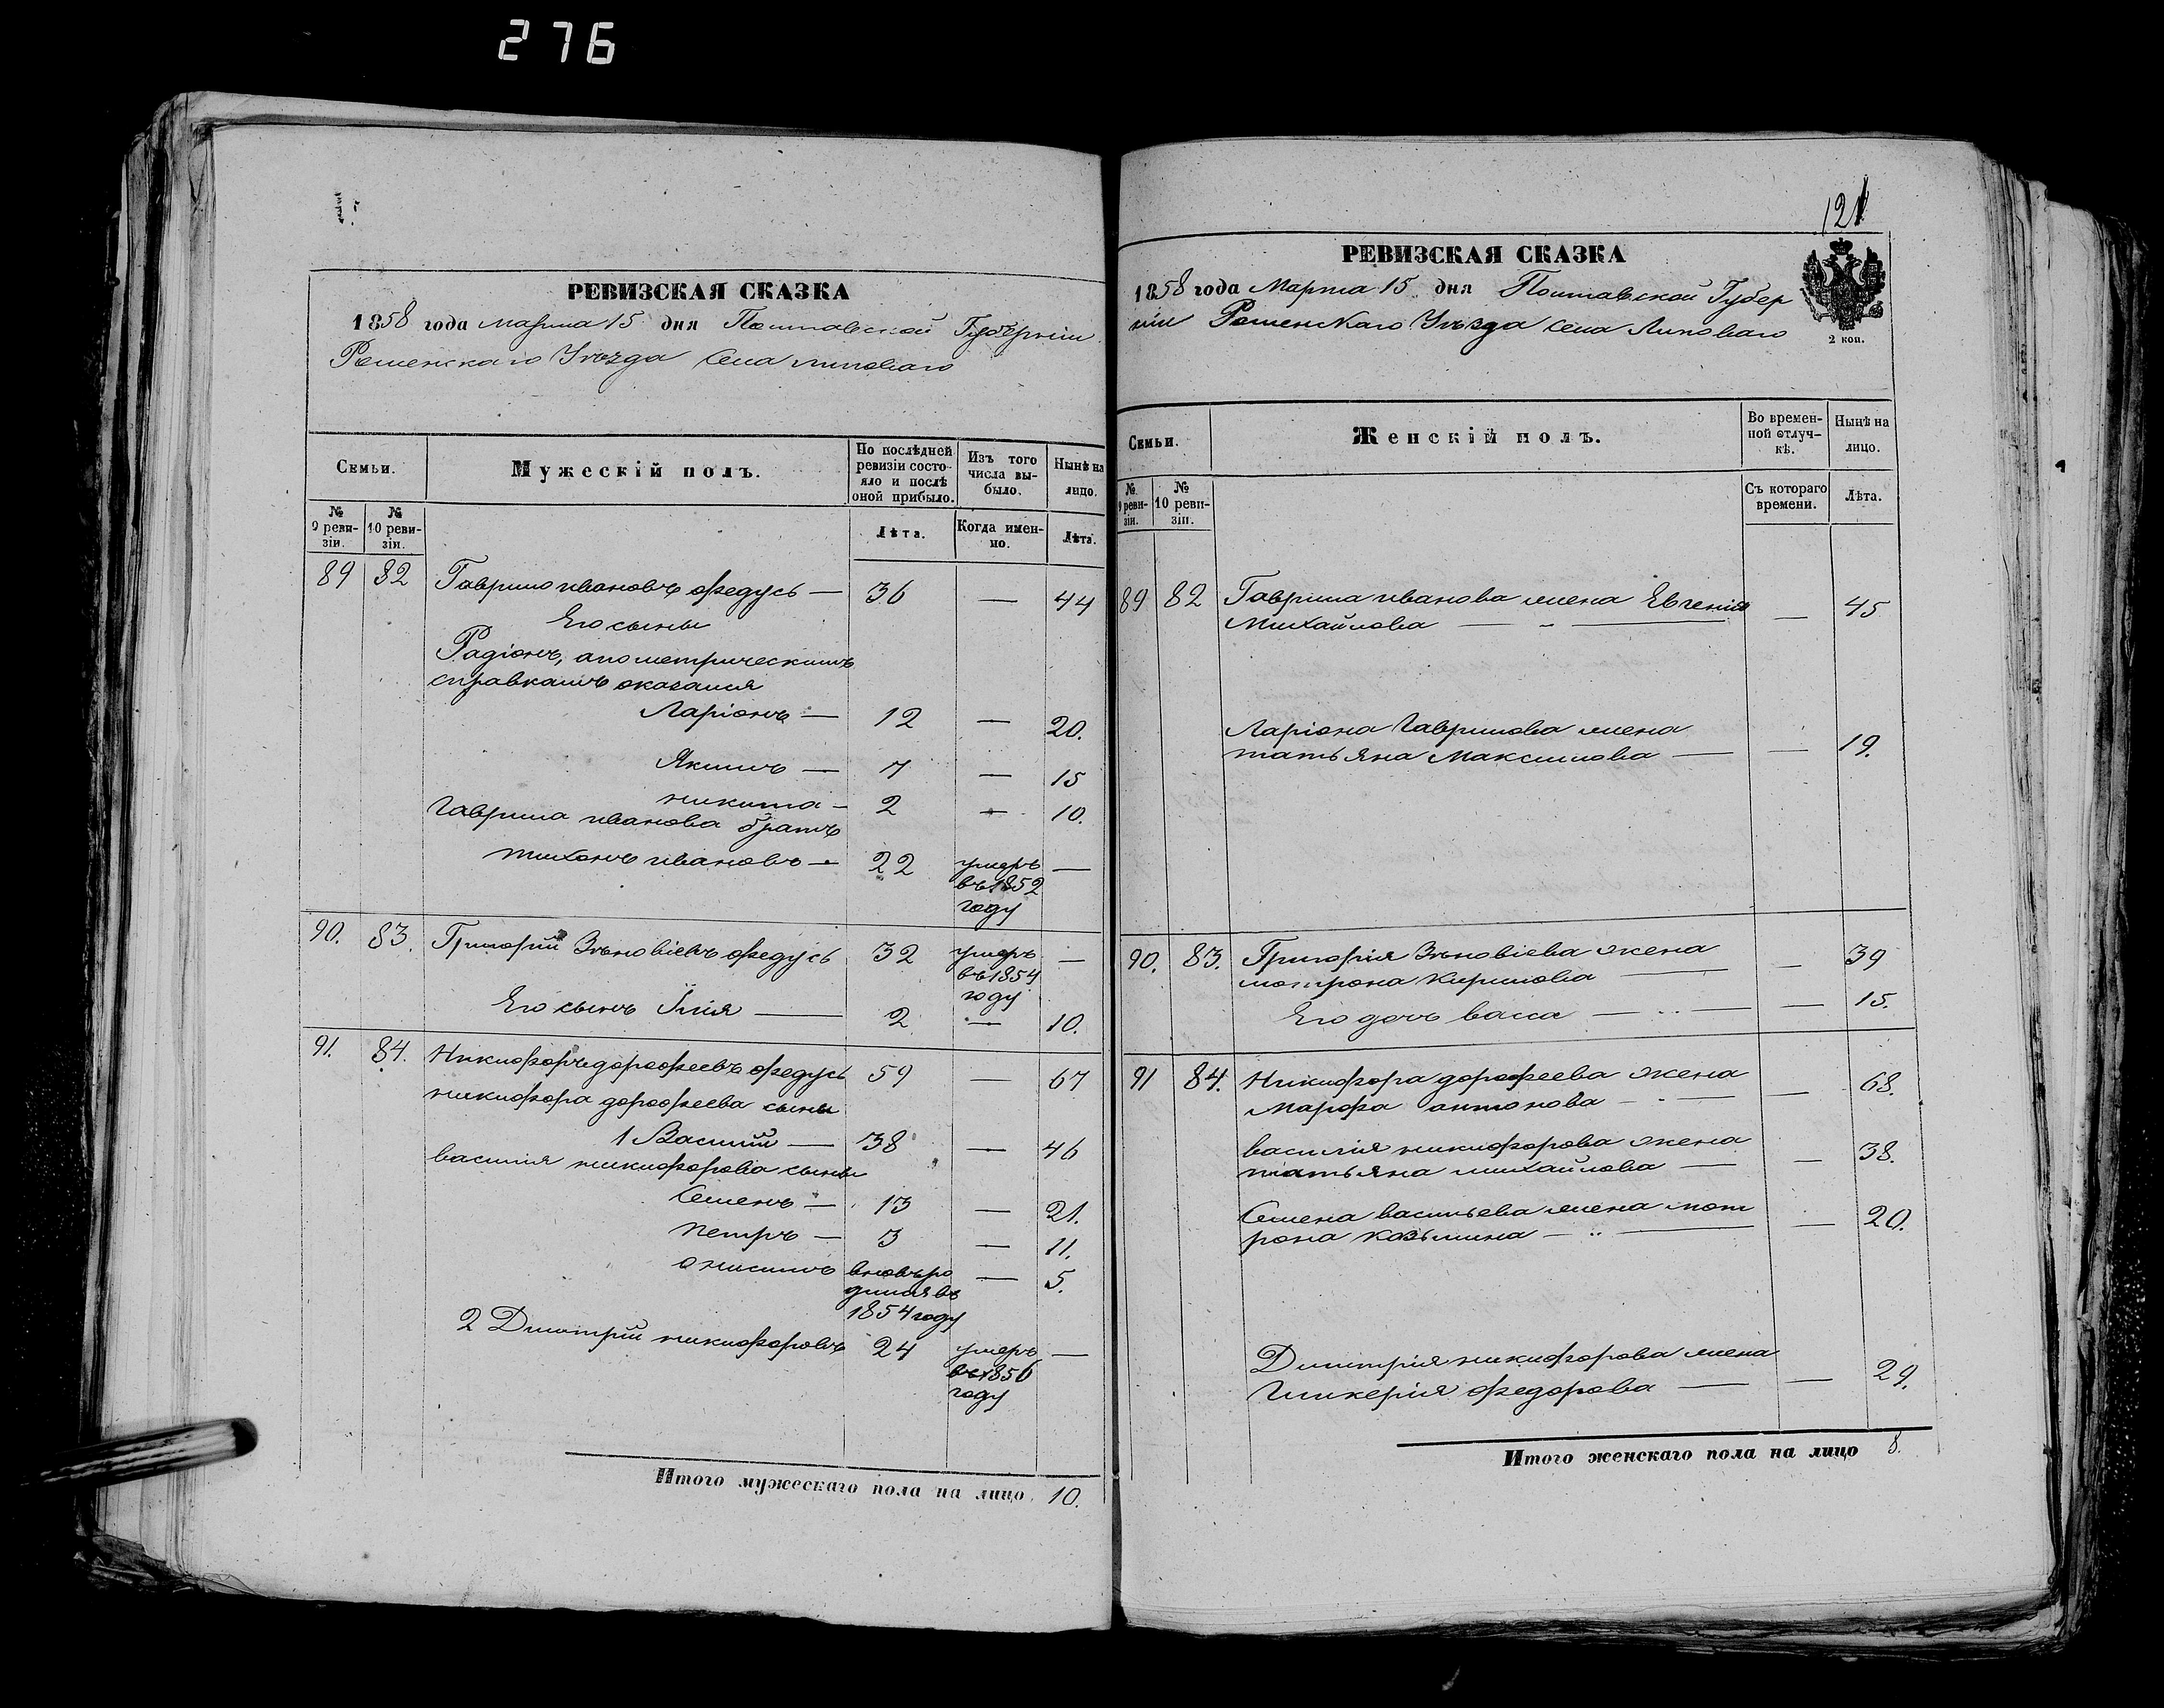 276
РЕВИЗСКАЯ СКАЗКА
1858 года марта 15 дня Полтавской Губерніи
Роменскаго Уѣзда Села липоваго
Семьи.
Мужескій полъ.
По послѣдней ревизіи состояло и послѣ оной прибыло.
Изъ того числа выбыло.
Нынѣ на лицо.
№ 9 ревизіи.
№ 10 ревизіи.
Лѣта.
Когда именно.
Лѣта.
89 82 Гаврило ивановъ федусь — 36 — 44
Его сыны
Радіонъ, апометрическимъ
справкамъ оказался
Ларіонъ — 12 — 20.
Якимъ — 7 — 15
никита — 2 — 10.
Гаврила иванова братъ
тихонъ ивановъ — 22 умеръ —
въ 1852
году
90. 83. Григорій Зѣновіевъ федусь 32 умеръ —
въ 1854
году
Его сынъ Илія — 2 — 10.
91. 84. Никифоръ дорофеевъ федусь 59 — 67
никифора дорофеева сыны
1 Василий — 38 — 46
василия никифорова сыны
Семенъ — 13 — 21.
петръ — 3 — 11.
онисимъ вновь ро — 5.
дился въ
1854 году
2 Дмитрій никифоровъ 24 умеръ —
въ 1856
году
Итого мужескаго пола на лицо 10.
121
РЕВИЗСКАЯ СКАЗКА
1858 года Марта 15 дня Полтавской Губер
ніи Роменскаго Уѣзда села Липоваго
2 коп.
Семьи.
Женскій полъ.
Во временной отлучкѣ.
Нынѣ на лицо.
№ 9 ревизіи.
№ 10 ревизіи.
Съ котораго времени.
Лѣта.
89 82 Гаврила иванова жена Евгенія
Михайлова — — 45
Ларіона Гаврилова жена
татьяна Максимова — — 19.
90. 83. Григорія Зѣновіева жена
мотрона Кирилова — — 39
Его дочь васса — — 15.
91 84. Никифора дорофеева жена
Марфа антонова — — 68.
василія никифорова жена
татьяна михайлова — — 38.
Семена васильева жена мот
рона козьмина — — 20.
Дмитрія никифорова жена
Гликерія федорова — — 29.
Итого женскаго пола на лицо 8.